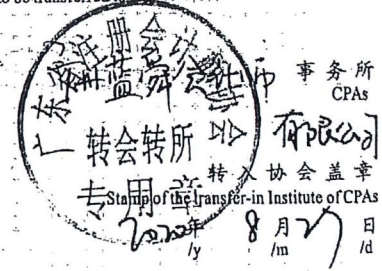 广东省注册会计师协会
事务所
CPAs
转会转所
有限公司
转入协会盖章
专用章
Stamp of the transfer-in Institute of CPAs
2020年 8月27日
/y /m /d